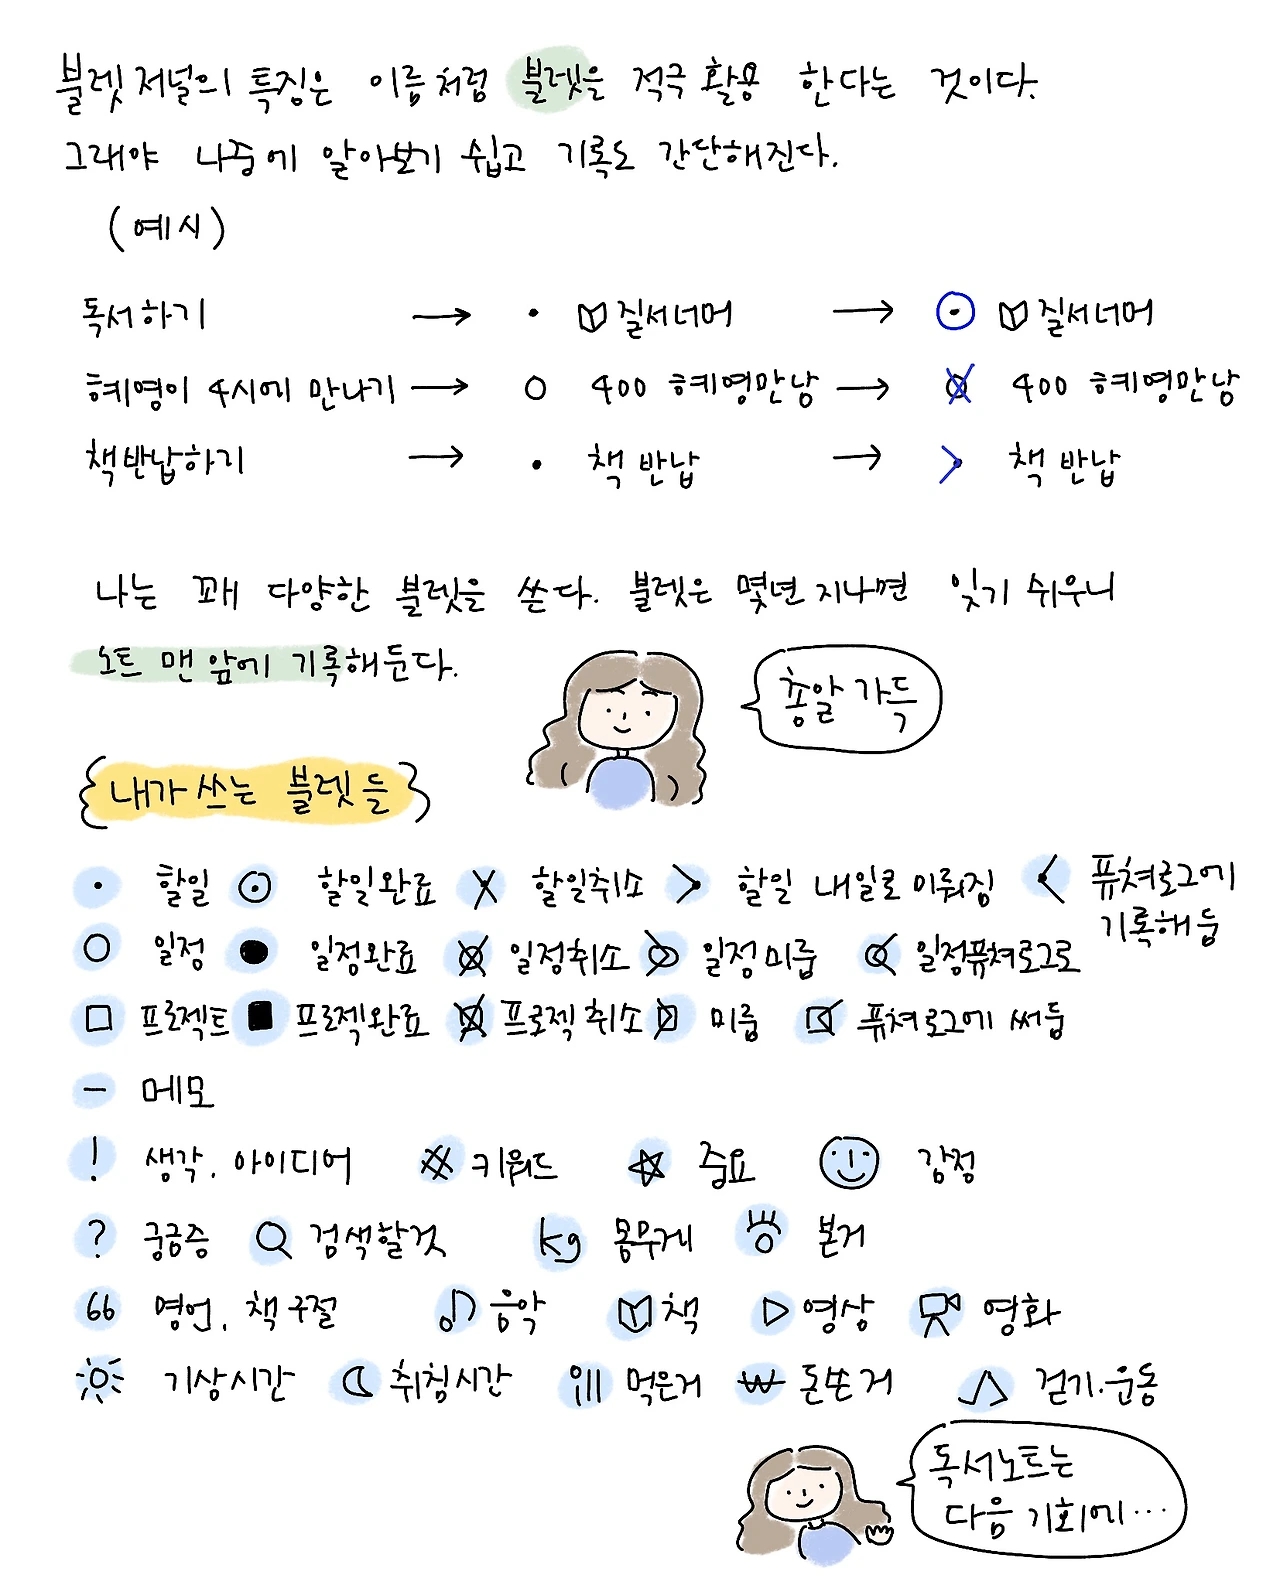 블렛저널의 특징은 이름처럼 블렛을 적극 활용 한다는 것이다.
그래야 나중에 알아보기 쉽고 기록도 간단해진다.
(예시)
독서하기 → • 질서너머 → 질서너머
혜영이 4시에 만나기 → ○ 400 혜영만남 → 400 혜영만남
책반납하기 → • 책 반납 → > 책 반납
나는 꽤 다양한 블렛을 쓴다. 블렛은 몇년 지나면 잊기 쉬우니
노트 맨 앞에 기록해둔다.
총알 가득
{내가 쓰는 블렛들}
• 할일 ⊙ 할일완료 X 할일취소 > 할일 내일로 미뤄짐 < 퓨쳐로그에
기록해둠
○ 일정 ● 일정완료 일정취소 일정미룸 일정퓨쳐로그로
□ 프로젝트 ■ 프로젝완료 프로젝취소 미룸 퓨쳐로그에 써둠
– 메모
! 생각, 아이디어 # 키워드 ☆ 중요 감정
? 궁금증 검색할것 kg 몸무게 본거
66 명언, 책구절 ♪ 음악 책 ▷ 영상 영화
기상시간 취침시간 먹은거 ₩ 돈쓴거 걷기.운동
독서노트는
다음 기회에…